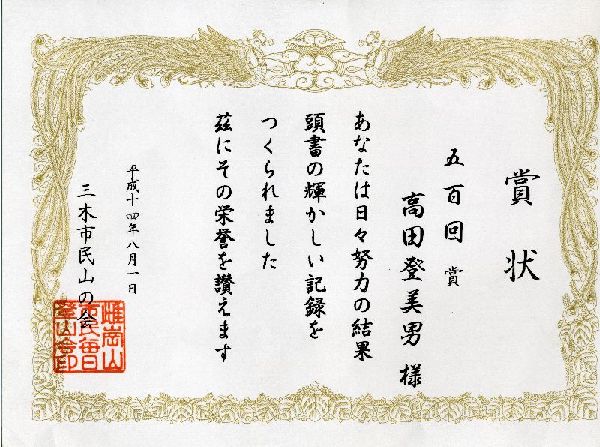 賞状
五百回賞
高田登美男 様
あなたは日々努力の結果
頭書の輝かしい記録を
つくられました
茲にその栄誉を讃えます
平成十四年八月一日
三木市民山の会
雌岡山
毎日
登山会印